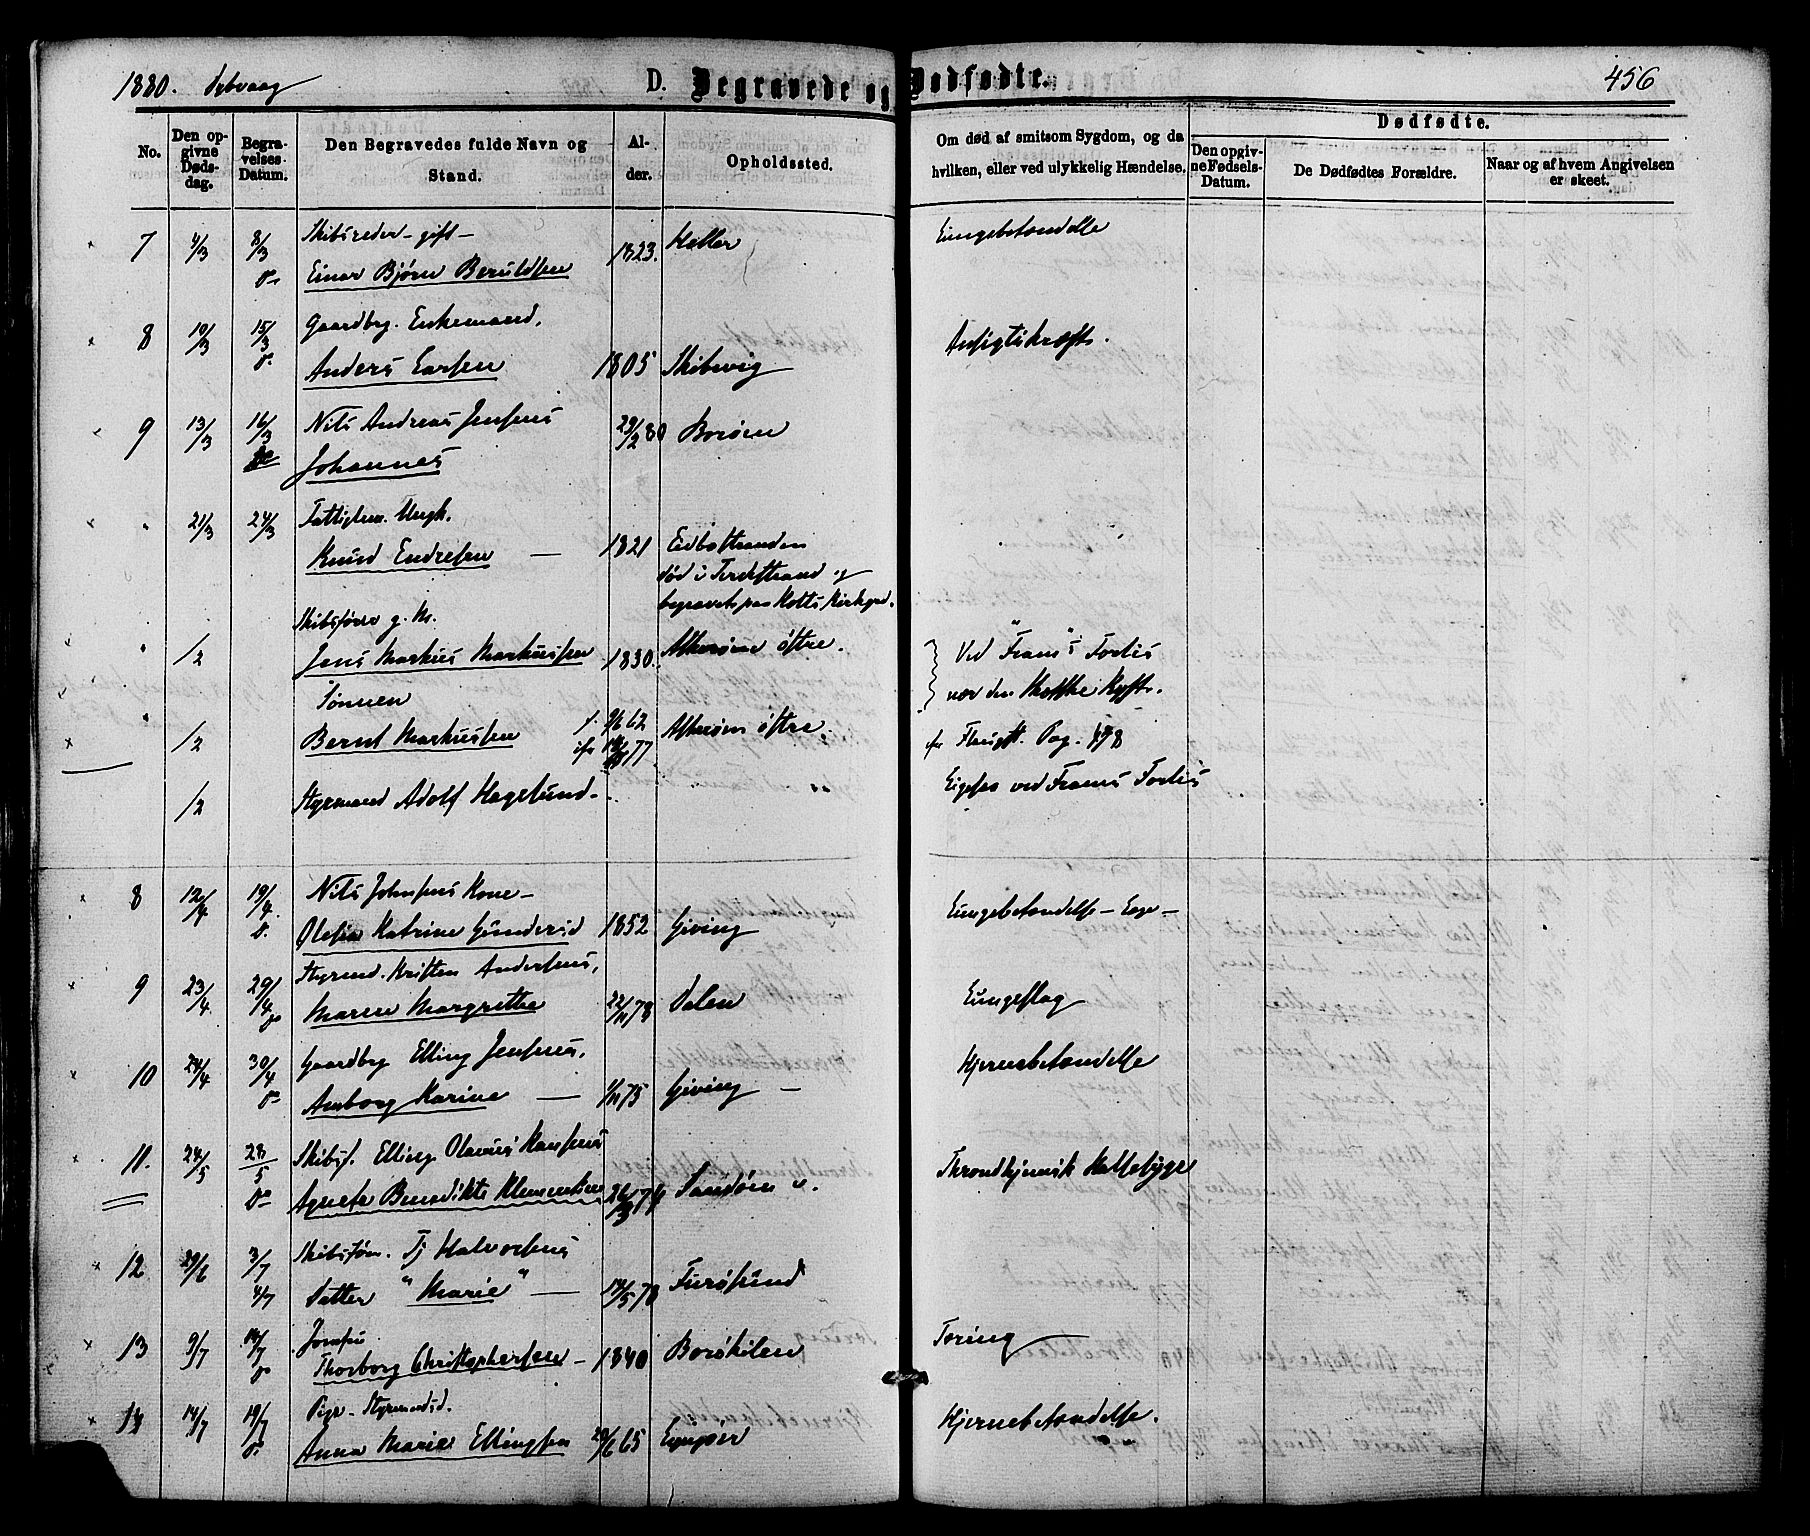 1880. Debvaag
D. Begravede og Dødfødte.
456
No.
Den opgivne Dødsdag.
Begravelses-Datum.
Den Begravedes fulde Navn og Stand.
Alder.
Opholdssted.
Om død af smitsom Sygdom, og da hvilken, eller ved ulykkelig Hændelse.
Dødfødte.
Den opgivne Fødsels-Datum.
De Dødfødtes Forældre.
Naar og af hvem Angivelsen er skeet.
Skibsreder - gift -
7 4/3 8/3 Einar Bjørn Beruldsen 1823. Haller Lungebetændelse
Gaardbr. Enkemand.
8 10/3 15/3 Anders Larsen 1805 Skibvig Ansigtskræft.
9 13/3 16/3 Nils Andreas Jensens 29/2 80 Borøen
Johannes
21/3 24/3 Fattiglem. Ungk.
Knud Endresen — 1821 Eidbostranden
død i Tvedestrand og
begravet paa Holts Kirkegrd.
Skibsfører g. M.
1/2 Jens Markus Markussen 1830. Alkerøen østre. Ved "Frams" Forlis
nær den Skotske Kyst.
Sønnen
1/2 Bernt Markussen f. 9/6 62 Alkerøen østre.
77 Pag.
1/2 Styrmand Adolf Hagelund - Ligesaa ved Frams Forlis
Nils Johnsens Kone -
8 12/4 19/4 Olefia Katrine Gundersd 1852 Giving Lungebetændelse
Styrmd. Kristen Andersens,
9 23/4 29/4 Maren Margrethe 22/11 78 Dalen Lungeslag
Gaardbr Elling Jensens,
10 24/4 30/4 Anborg Karine — 1/11 75 Giving — Hjernebetændelse
Skibsf. Elling Olavus Hansens
11. 24/5 28/5 Agnete Benedikte Klementine Sandøen v. Throndhjemsk Halsesyge
Skibstøm. Tj Halvorsens
12 29/6 3/7 Datter "Marie" — 14/5 78 Furøsund
4/7
13 9/7 14/7 Thorborg Christophersen - 1840 Borøkilen Tæring
Pige - Styrmandsd.
14 14/7 19/7 Anna Marie Ellingsen 29/6 65 Lyngør Hjernebetændelse.